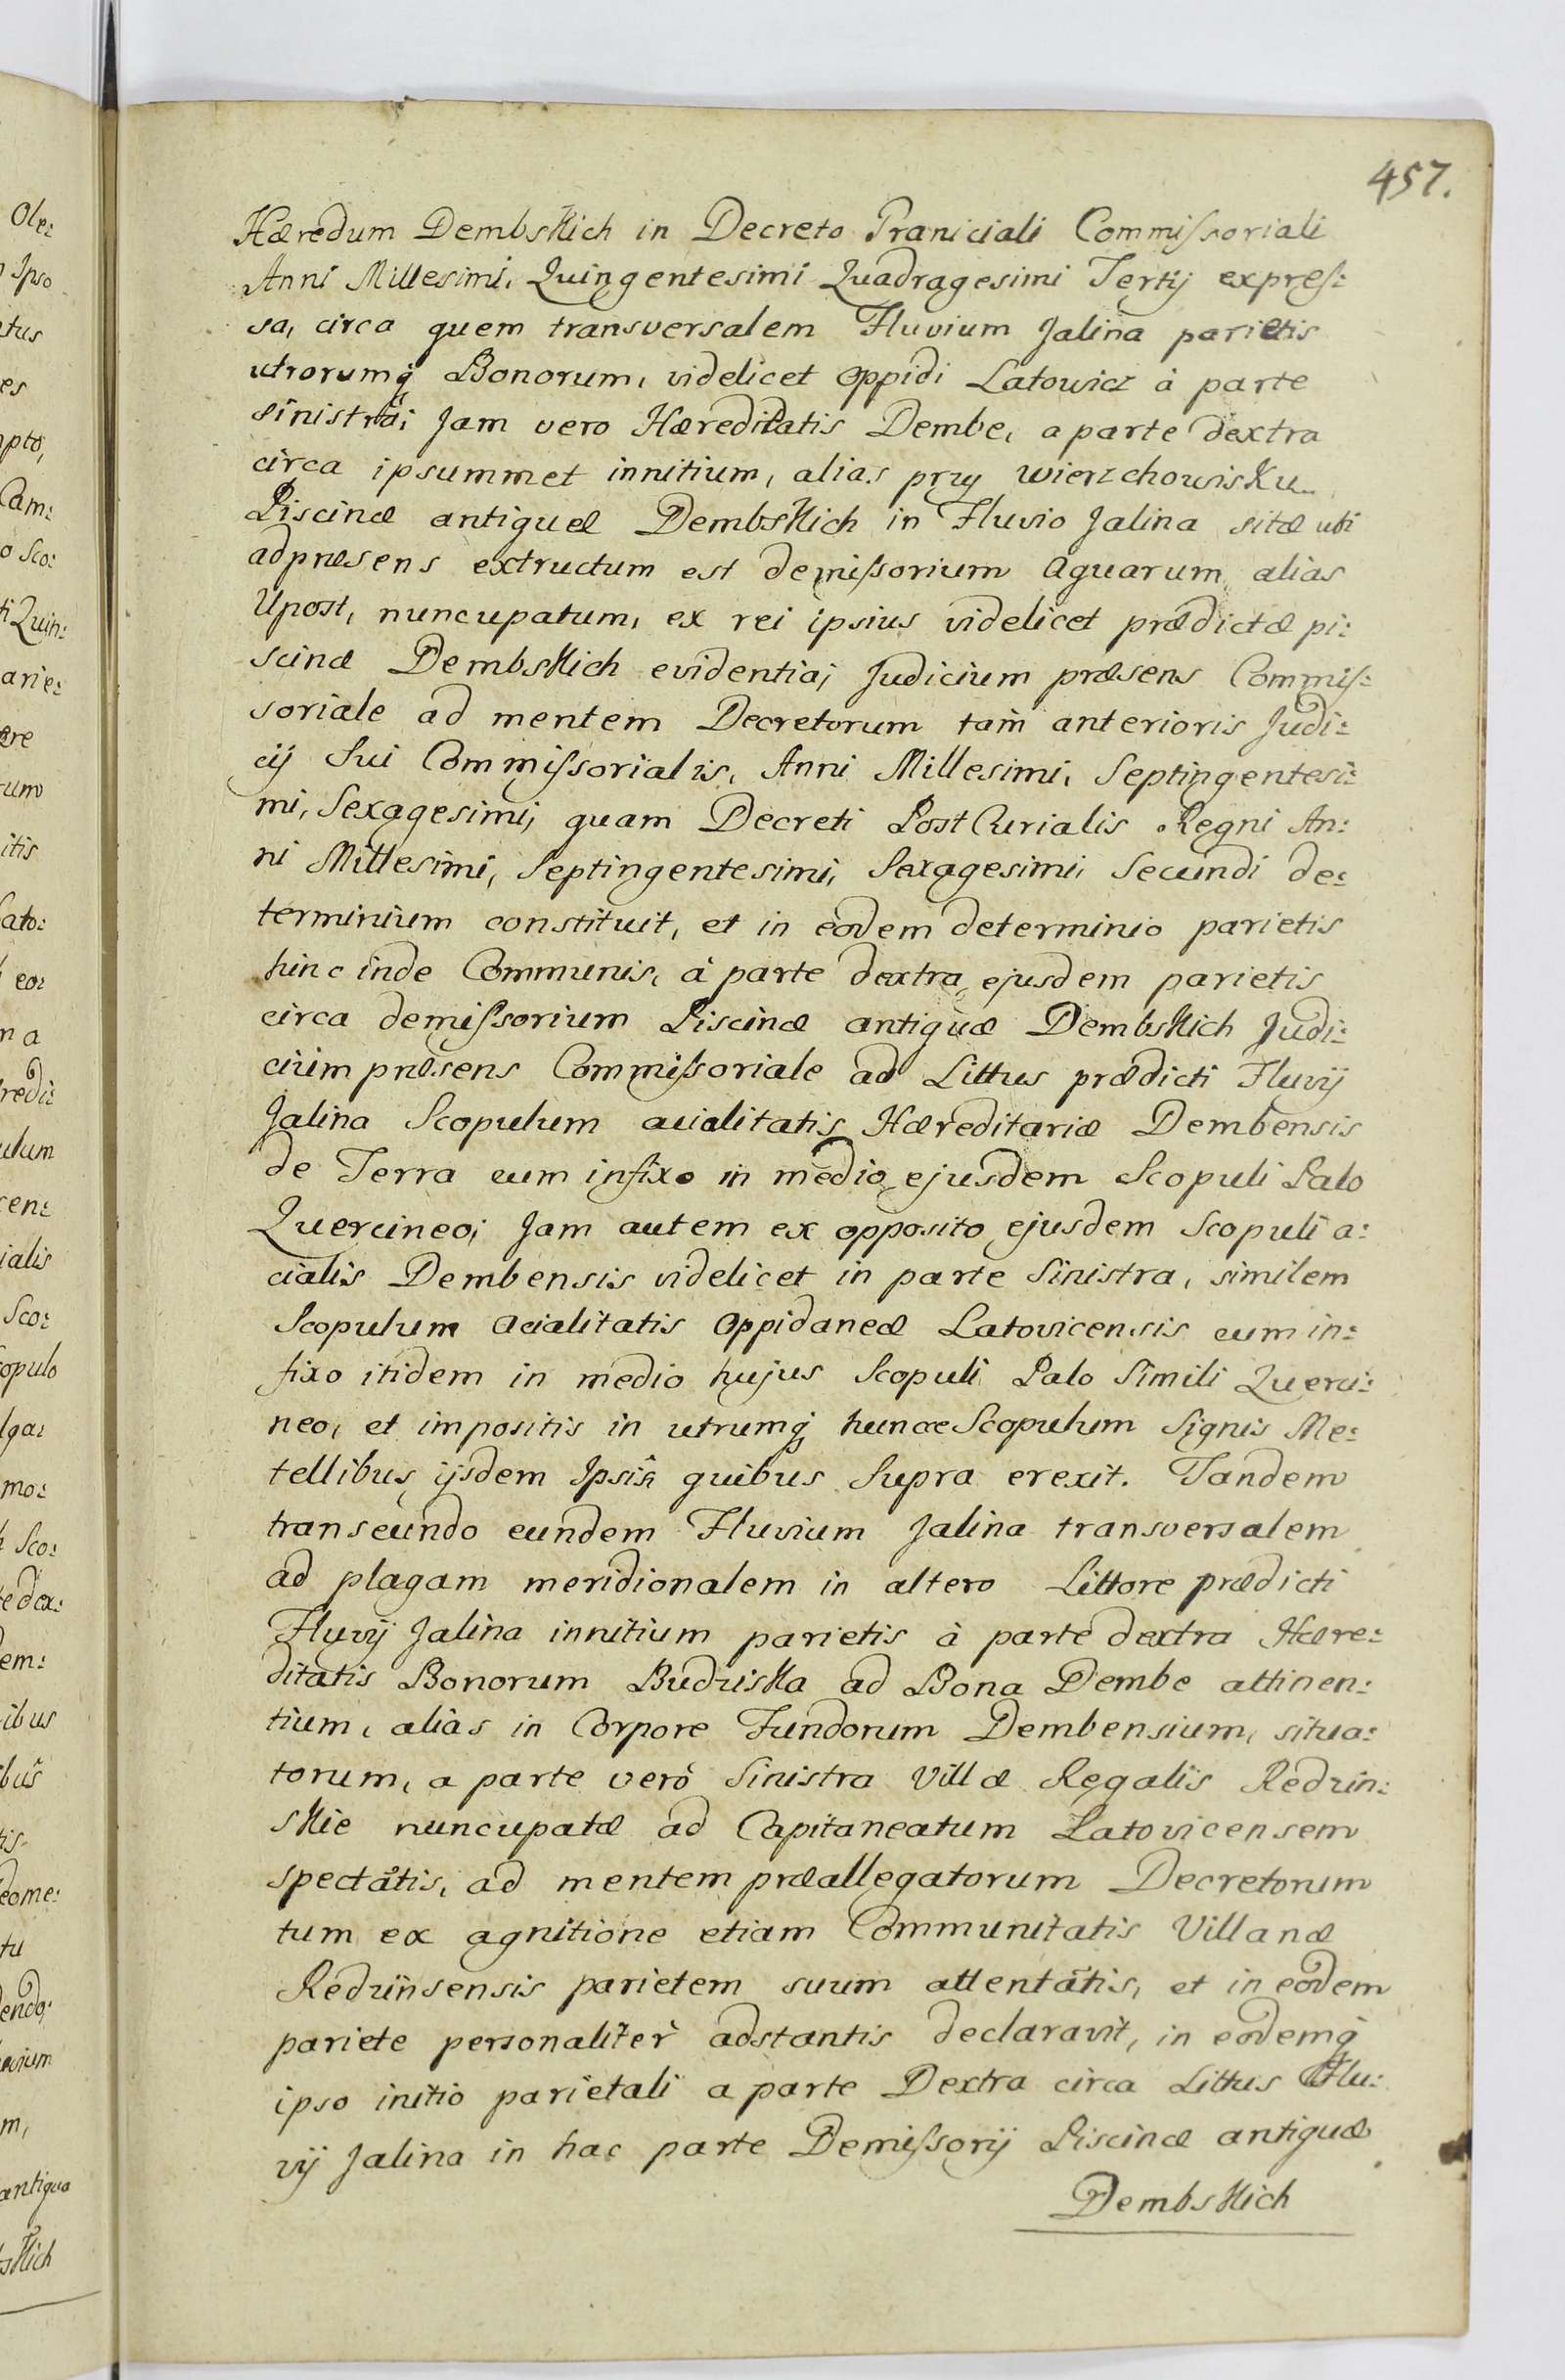 457.
Hæredum Dembskich in Decreto Praniciali Commiſsoriali
Anni Millesimi, Quingentesimi Quadragesimi Tertij expreſ:
sa, circa quem transversalem Fluvium Jalina parietis
utrorumq Bonorum, videlicet oppidi Latowicz à parte
sinistra; Jam vero Hæreditatis Dembe, a parte dextra
circa ipsummet innitium, alias przy wierzchowisku
Piscinæ antiquæ Dembskich in Fluvio Jalina sitæ ubi
adpræsens extructum est demiſsorium aquarum, alias
Upost, nuncupatum, ex rei ipsius videlicet prædictæ pi:
scinæ Dembskich evidentia; Judicium præsens Commiſ:
soriale ad mentem Decretorum tam anterioris Judi:
cij Sui Commiſsorialis, Anni Millesimi, Septingentesi:
mi, Sexagesimi, quam Decreti PostCurialis Regni An:
ni Millesimi, Septingentesimi, Sexagesimi, Secundi de:
terminium constituit, et in eodem determinio parietis
hinc inde Communis, à parte dextra ejusdem parietis
circa demiſsorium Piscinæ antiquæ Dembskich Judi:
cium præsens Commiſsoriale ad Littus prædicti Fluvij
Jalina Scopulum acialitatis Hæreditariæ Dembensis
de Terra cum infixo in medio ejusdem Scopuli Palo
Quercineo; Jam autem ex opposito ejusdem Scopuli a:
cialis Dembensis videlicet in parte Sinistra, similem
Scopulum acialitatis Oppidaneæ Latovicensis cum in:
fixo itidem in medio hujus Scopuli Palo Simili Querci:
neo, et impositis in utrumq hunce Scopulum Signis Me:
tellibus ijsdem quibus Supra erexit. Tandem
transeundo eundem Fluvium Jalina transversalem
ad plagam meridionalem in altero Littore prædicti
Fluvij Jalina innitium parietis à parte dextra Hære:
ditatis Bonorum Budziska ad Bona Dembe attinen:
tium, alias in Corpore Fundorum Dembensium, situa:
torum, a parte verò Sinistra Villæ Regalis Redzin:
skie nuncupatæ ad Capitaneatum Latovicensem
spectãtis, ad mentem præallegatorum Decretorum
tum ex agnitione etiam Communitatis Villanæ
Redzinsensis parietem suum attentãtis, et in eodem
pariete personaliter adstantis declaravit, in eodemq
ipso initio parietali a parte Dextra circa Littus Flu:
vij Jalina in hac parte Demiſsorij Piscinæ antiquæ
Dembskich